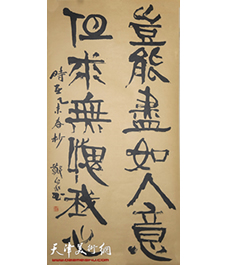 豈能盡如人意
但求無愧我心
時在乙未春杪
天津美术网